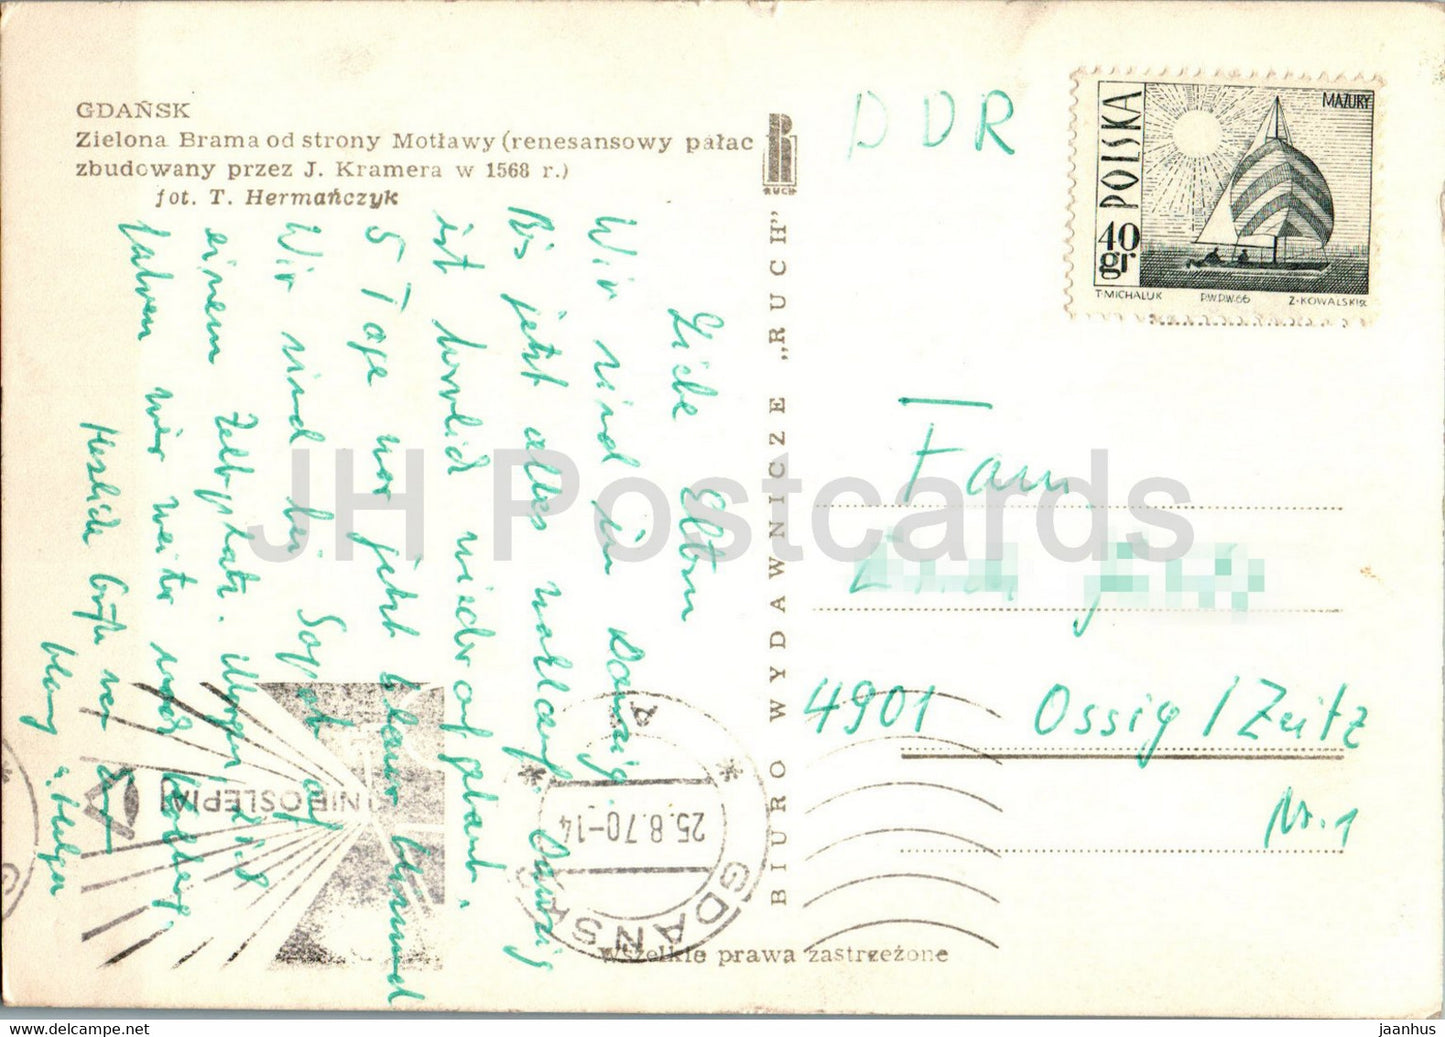 GDAŃSK
Zielona Brama od strony Motławy (renesansowy pałac
zbudowany przez J. Kramera w 1568 r.)
fot. T. Hermańczyk
RUCH
BIURO WYDAWNICZE „RUCH”
Wszelkie prawa zastrzeżone
Liebe Eltern
Wir sind in Danzig.
Bis jetzt alles Danzig
ist wieder aufgebaut.
5 Tage war jetzt blauer Himmel
Wir sind bei Sopot auf
einem Zeltplatz. Morgen
fahren wir weiter nach Kolberg.
Herzliche Grüße
u. Helga
DDR
POLSKA
MAZURY
40
gr
T. MICHALUK P.W.P.W.66 Z. KOWALSKI
NIE OŚLEPIAJ
GDAŃSK
25.8.70-14
Fam.
4901 Ossig / Zeitz
Nr. 1
JH Postcards
www.delcampe.net
jaanhus